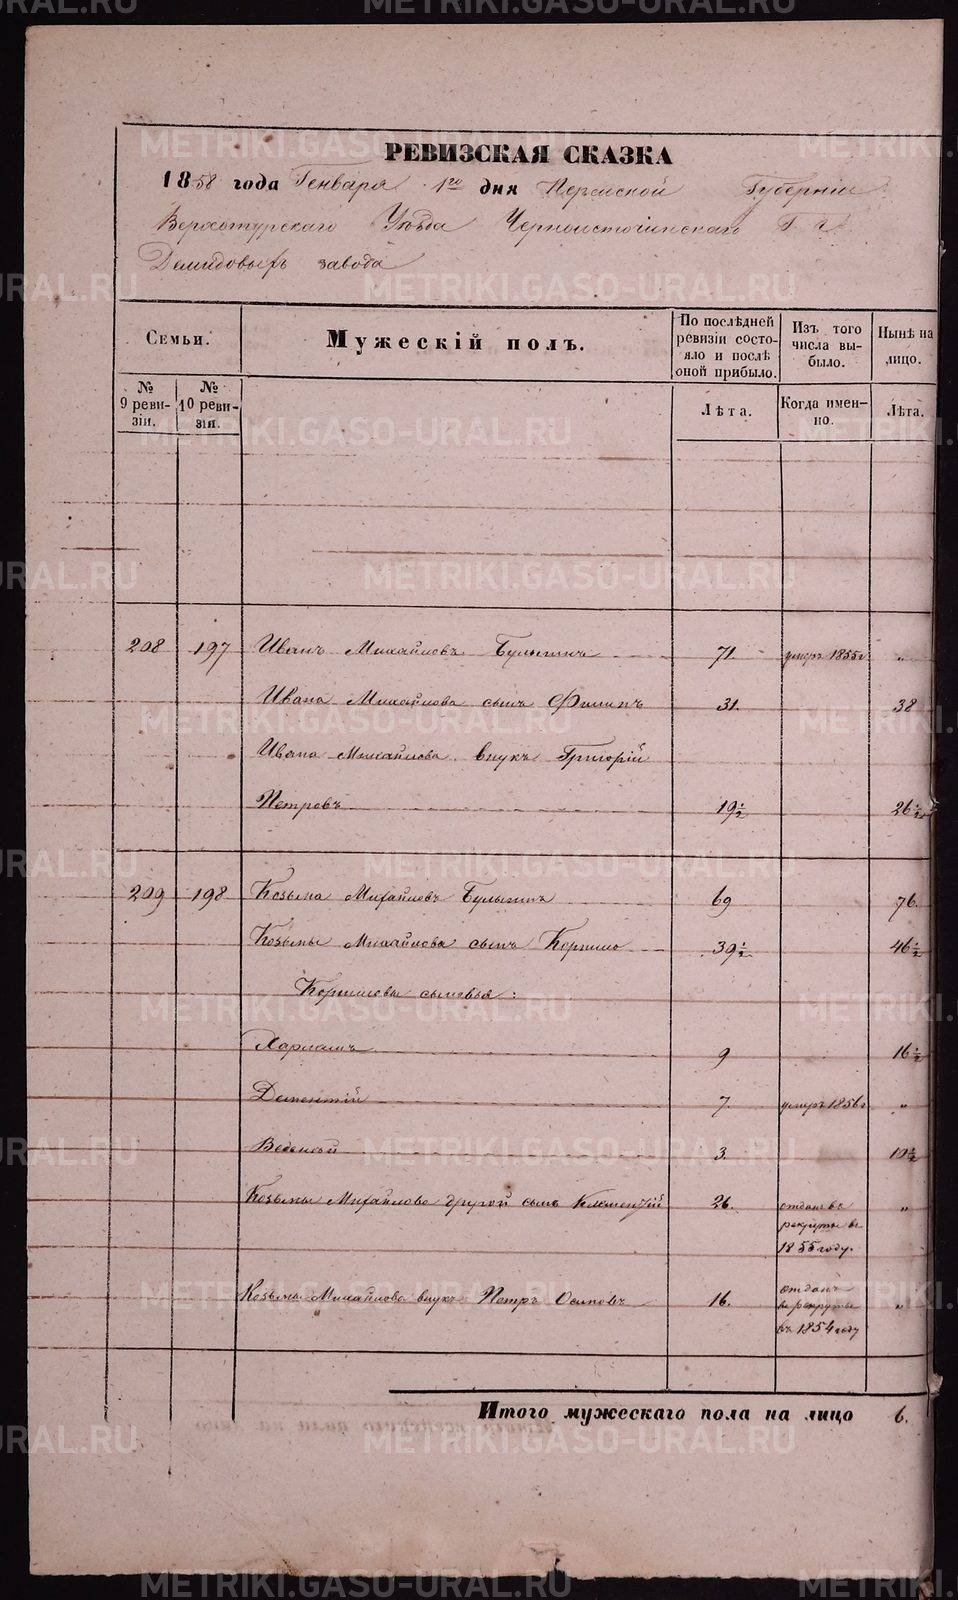 РЕВИЗСКАЯ СКАЗКА
1858 года Генваря 1го дня Пермской Губерніи
Верхотурскаго Уѣзда Черноисточинскаго Г. г.
Демидовыхъ завода
Семьи.
Мужескій полъ.
По послѣдней ревизіи состояло и послѣ оной прибыло.
Изъ того числа выбыло.
Нынѣ на лицо.
№ 9 ревизіи.
№ 10 ревизія.
Лѣта.
Когда именно.
Лѣта.
208 197 Иванъ Михайловъ Булыгинъ 71. умеръ 1855 г. „
Ивана Михайлова сынъ Филипъ 31. 38
Ивана Михайлова внукъ Григорій
Петровъ 19½ 26½
209 198 Козьма Михайловъ Булыгинъ 69 76.
Козьмы Михайлова сынъ Корнило 39½ 46½
Корниловы сыновья:
Харламъ 9 16½
Дементій 7. умеръ 1856 г „
Ведений 3. 10½
Козьмы Михайлова другой сынъ Клементій 26. отданъ въ рекруты въ 1855 году. „
Козьмы Михайлова внукъ Петръ Осиповъ 16. отданъ въ рекруты въ 1854 году „
Итого мужескаго пола на лицо 6.
METRIKI.GASO-URAL.RU